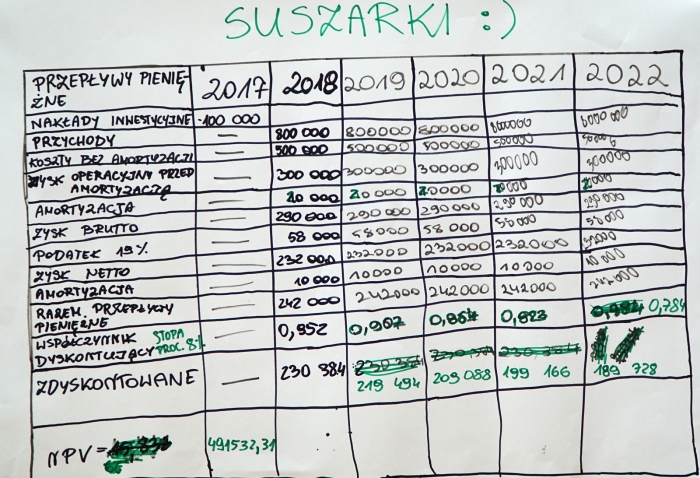 SUSZARKI :)
PRZEPŁYWY PIENIĘ- 2017 2018 2019 2020 2021 2022
ŻNE
NAKŁADY INWESTYCYJNE -100 000
PRZYCHODY — 800 000 800000 800000 800000 8000 000
KOSZTY BEZ AMORTYZACJI — 500 000 500000 500000 500000
ZYSK OPERACYJNY PRZED — 300 000 300000 300000 300000 300000
AMORTYZACJĄ
AMORTYZACJA — 20 000 20000 20000
ZYSK BRUTTO — 290 000 290 000 290000 290 000 290 000
PODATEK 19% — 58 000 58000 58 000 58 000 58 000
ZYSK NETTO — 232 000 232000 232000 232000
AMORTYZACJA — 10 000 10000 10000 10000 10 000
RAREM. PRZEPŁYWY — 242 000 242000 242000 242000 242000
PIENIĘŻNE
WSPÓŁCZYNNIK STOPA — 0,952 0,907 0,864 0,823 0,784
DYSKONTUJĄCY PROC. 8%
ZDYSKONTOWANE — 230 384 219 494 209 088 199 166 189 728
NPV = 491532,31